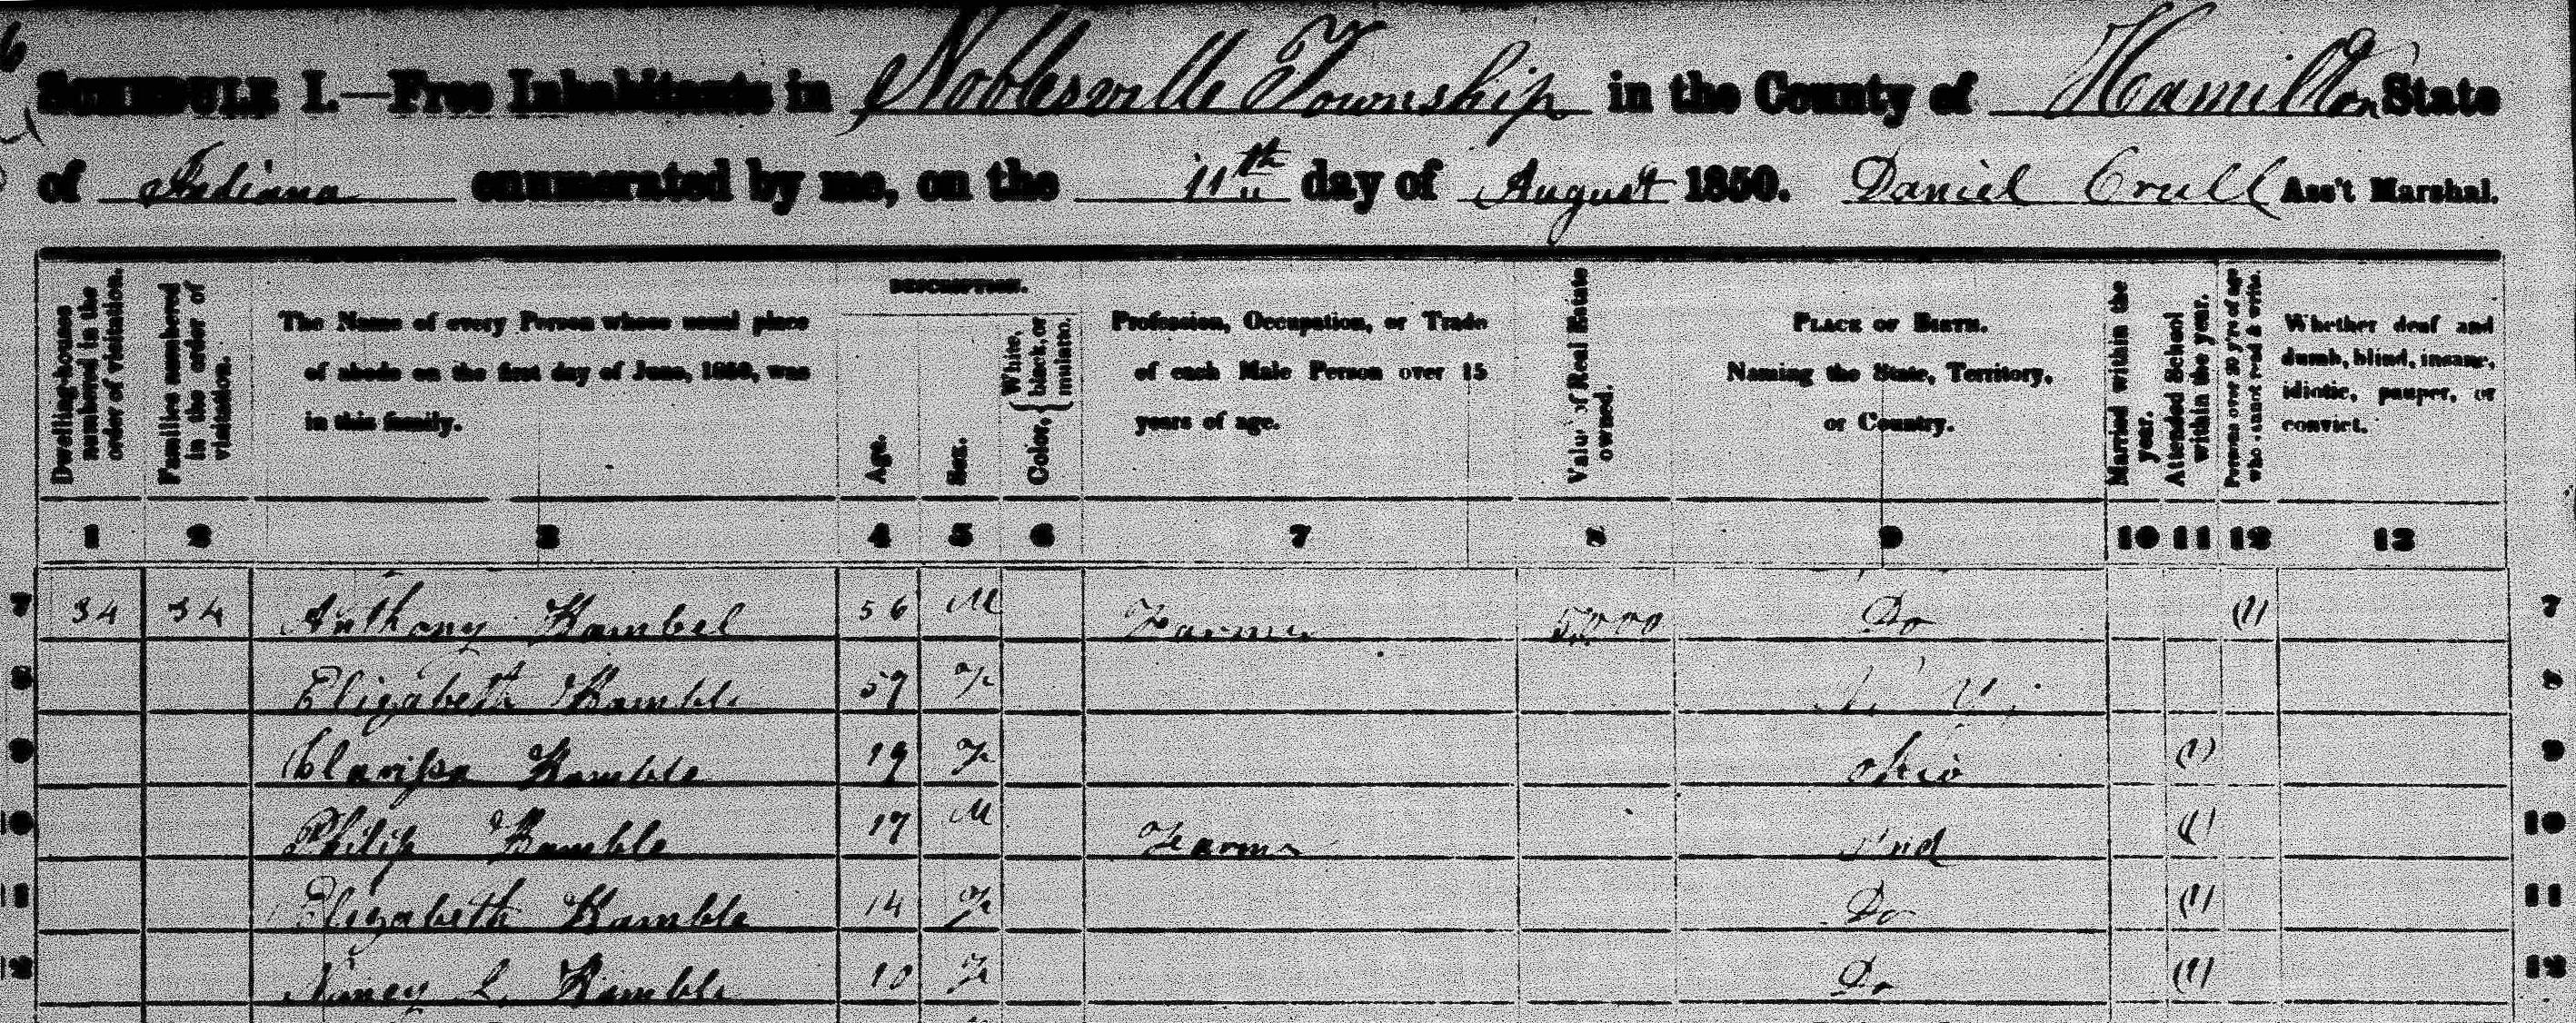 SCHEDULE I.—Free Inhabitants in Noblesville Township in the County of Hamilton State
of Indiana enumerated by me, on the 11th day of August 1850. Daniel Crull Ass't Marshal.
Dwelling-houses numbered in the order of visitation.
Families numbered in the order of visitation.
The Name of every Person whose usual place of abode on the first day of June, 1850, was in this family.
DESCRIPTION.
Age.
Sex.
Color, { White, black, or mulatto.
Profession, Occupation, or Trade of each Male Person over 15 years of age.
Value of Real Estate owned.
PLACE OF BIRTH. Naming the State, Territory, or Country.
Married within the year.
Attended School within the year.
Persons over 20 y'rs of age who cannot read & write.
Whether deaf and dumb, blind, insane, idiotic, pauper, or convict.
1 2 3 4 5 6 7 8 9 10 11 12 13
7 34 34 Anthony Kambel 56 M Farmer 5,000 Do (1) 7
8 Elizabeth Kamble 57 F 8
9 Clarissa Kamble 19 F Ohio (1) 9
10 Philip Kamble 17 M Farmer Ind (1) 10
11 Elizabeth Kamble 14 F Do (1) 11
12 Nancy L. Kamble 10 F Do (1) 12